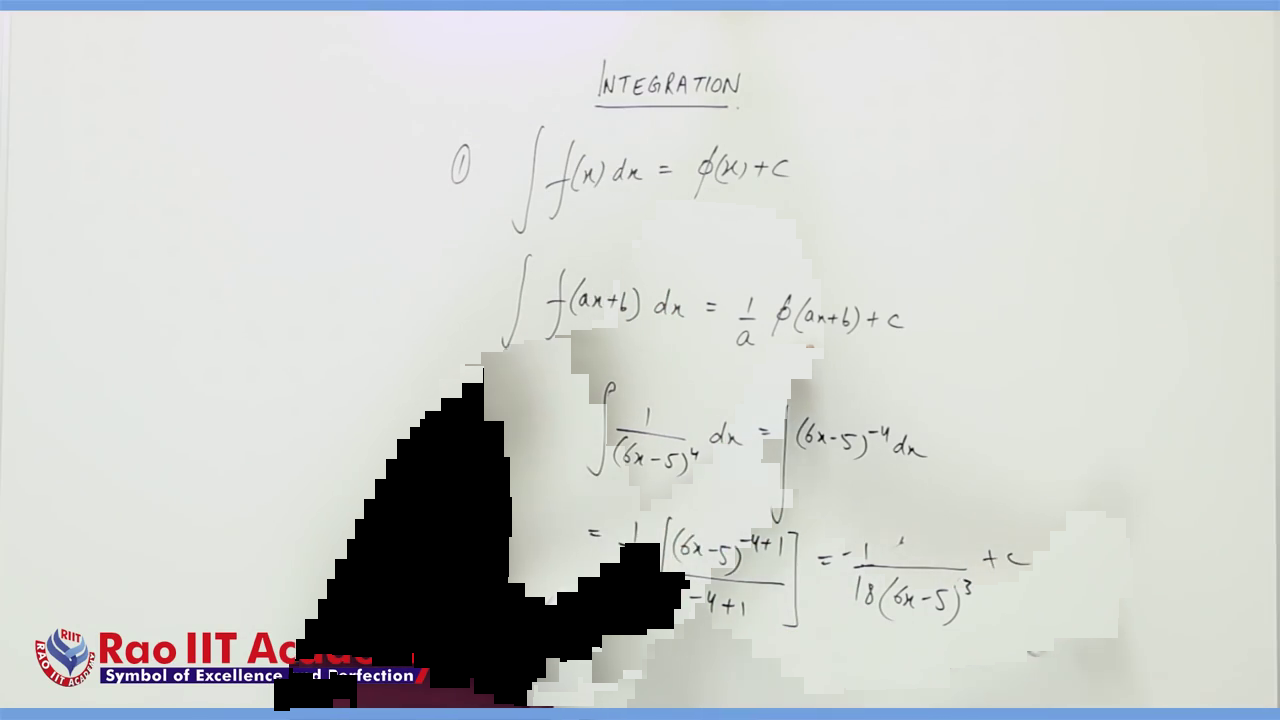 INTEGRATION
① ∫ f(x) dx = ϕ(x) + c
∫ f(ax+b) dx = 1/a ϕ(ax+b) + c
∫ 1/(6x-5)^4 dx = ∫ (6x-5)^-4 dx
= 1 [(6x-5)^-4+1 / -4+1] = -1/18(6x-5)^3 + c
RIIT
RAO IIT ACADEMY
Rao IIT
Symbol of Excellence and Perfection